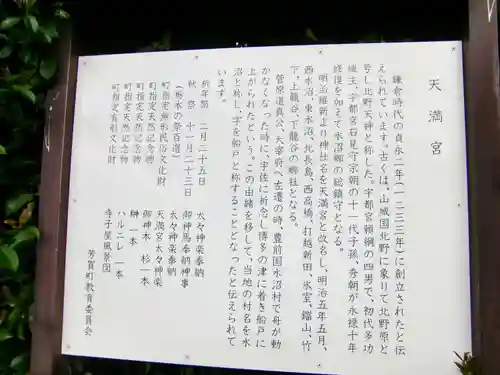 天満宮
鎌倉時代の貞永二年(一二三三年)に創立されたと伝
えられています。古くは、山城国北野に象りて北野原と
号し北野天神と称した。宇都宮頼綱の四男で、初代多功
城主、宇都宮石見守宗朝の十一代子孫、秀朝が永禄十年
修復を加えて水沼郷の総鎮守となる。
明治維新より神社名を天満宮と改名し、明治五年五月、
西水沼、東水沼、北長島、西高橋、打越新田、氷室、鐺山、竹
下、上籠谷、下籠谷の郷社となる。
菅原道真公、大宰府へ左遷の時、豊前国水沼村で舟が動
かなくなった時に、宇佐に祈念し博多の津に着き船戸に
上がられたという。この由緒を移して、当地の村名を水
沼と称し、字を船戸と称することとなったと伝えられて
います。
祈年祭 二月二十五日 太々神楽奉納
秋祭 十一月二十三日 御神馬奉納神事
(梵永の祭百選) 太々神楽奉納
町指定無形民俗文化財 天満宮太々神楽
町指定天然記念物 御神木 杉一本
町指定天然記念物 榊一本
町指定天然記念物 ハルニレ一本
町指定有形文化財 寺子屋風景図
芳賀町教育委員会